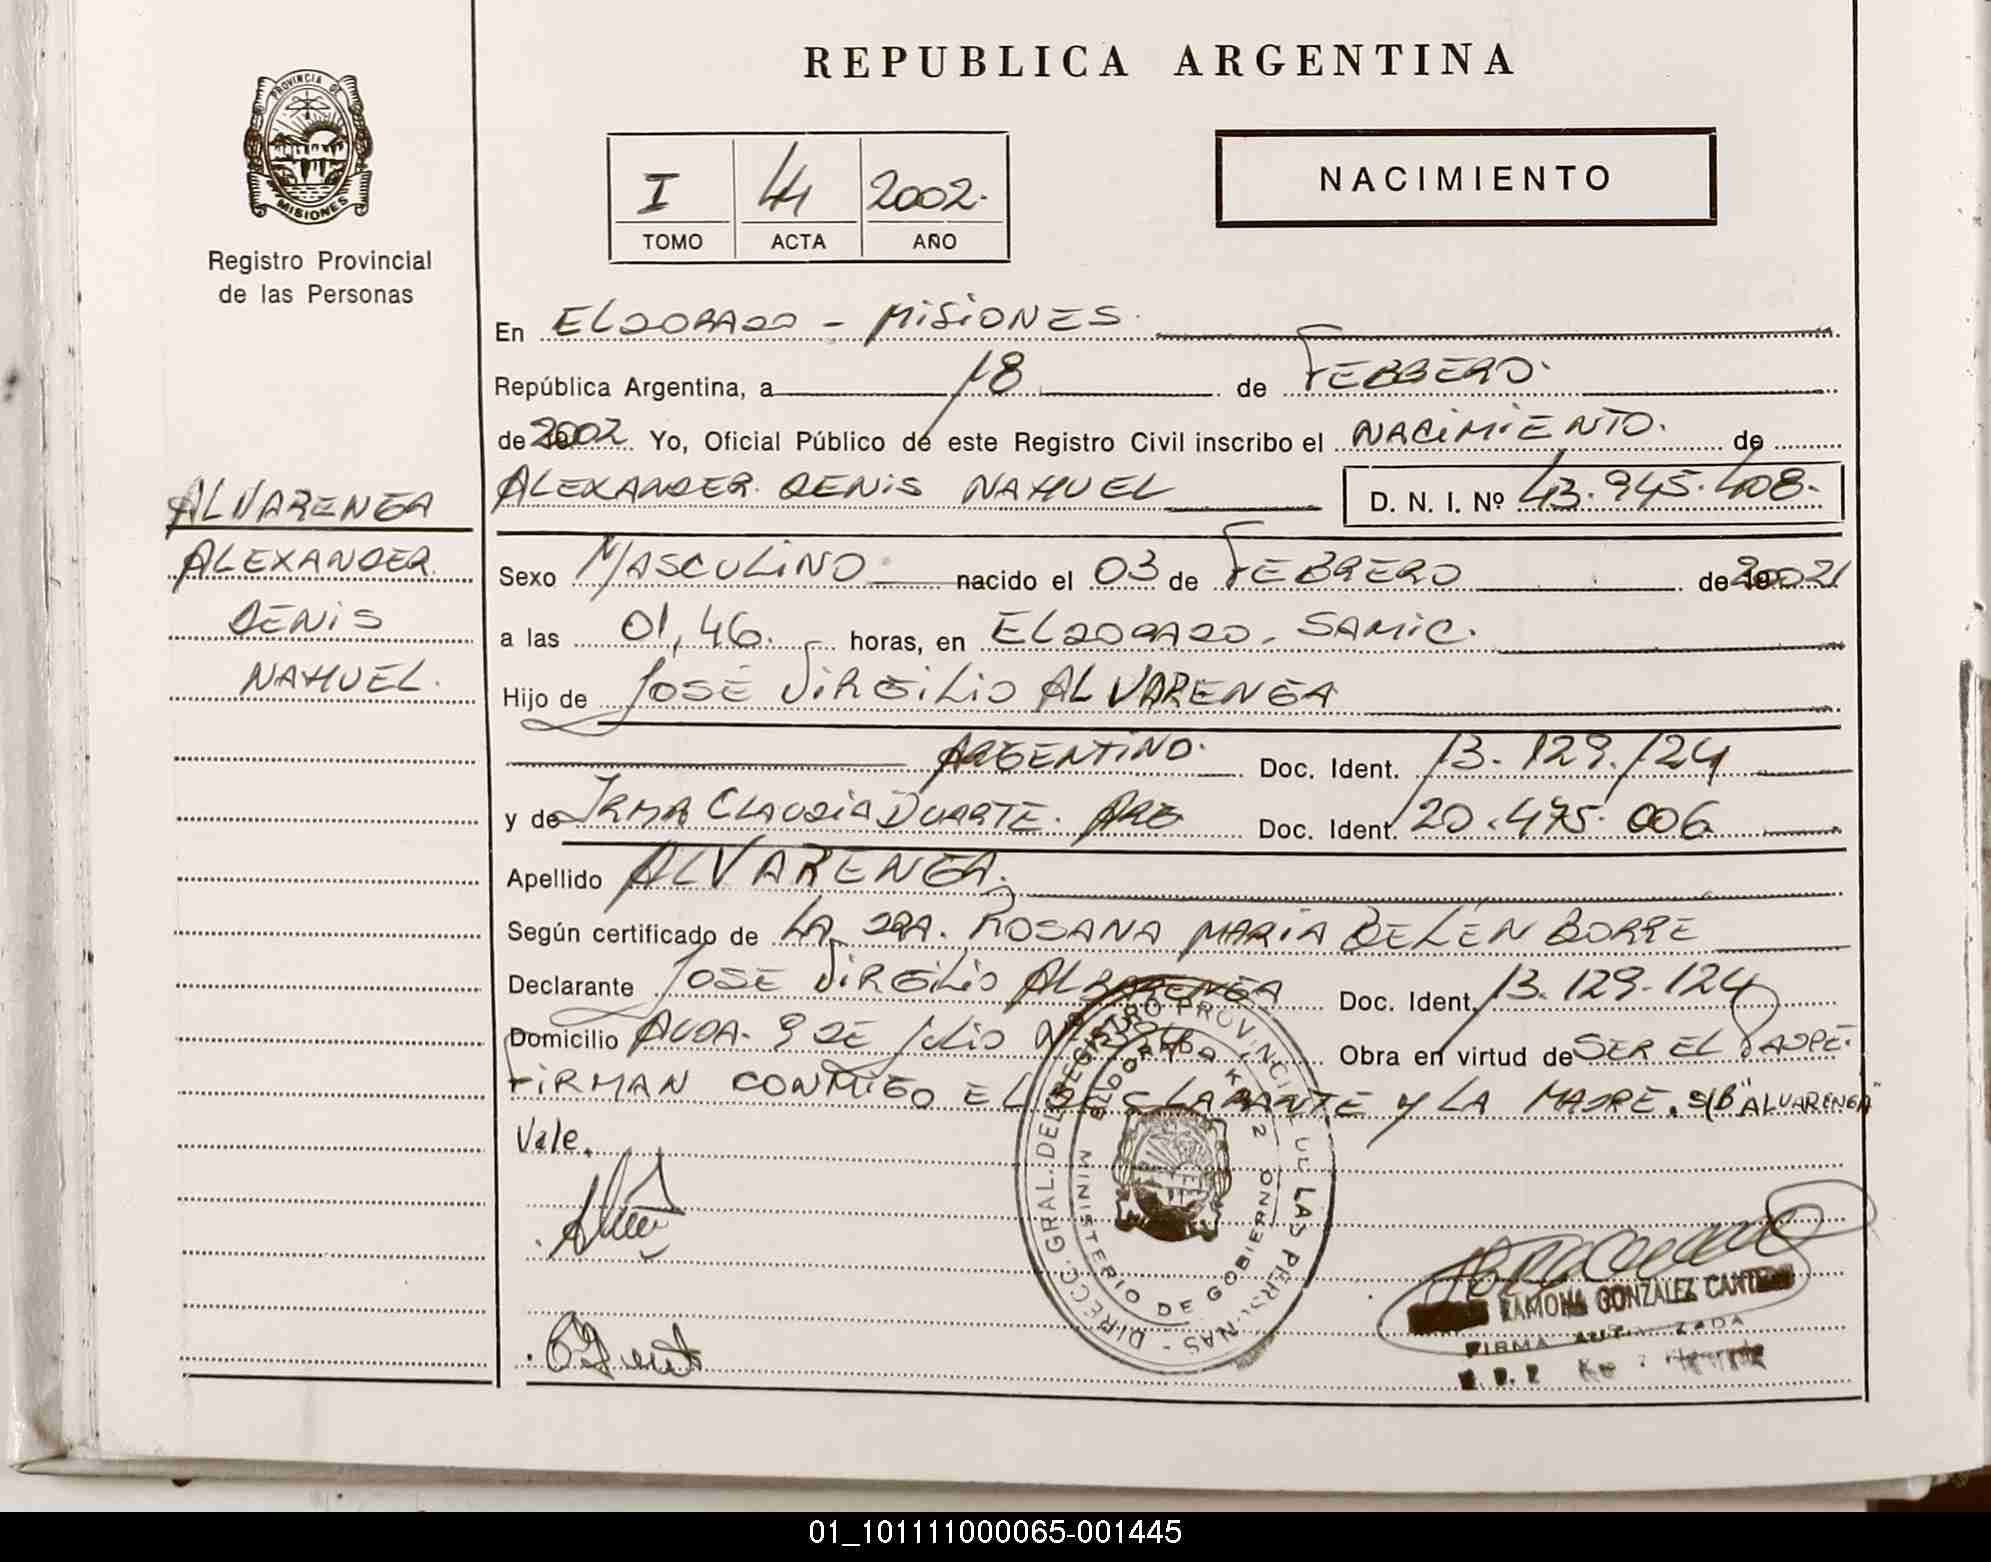 REPUBLICA ARGENTINA
PROVINCIA DE
MISIONES
Registro Provincial
de las Personas
I 44 2002.
TOMO ACTA AÑO
NACIMIENTO
En ELDORADO - MISIONES.
República Argentina, a 18 de FEBRERO.
de 2002 Yo, Oficial Público de este Registro Civil inscribo el NACIMIENTO. de
ALEXANDER DENIS NAHUEL D. N. I. Nº 43.945.408.
ALVARENGA
ALEXANDER
DENIS
NAHUEL.
Sexo MASCULINO nacido el 03 de FEBRERO de 2002
a las 01,46. horas, en ELDORADO, SAMIC.
Hijo de JOSÉ VIRGILIO ALVARENGA
ARGENTINO. Doc. Ident. 13.129.124
y de IRMA CLAUDIA DUARTE. ARG Doc. Ident. 20.475.006
Apellido ALVARENGA.
Según certificado de LA DRA. ROSANA MARIA BELÉN BORRE
Declarante JOSE VIRGILIO ALVARENGA Doc. Ident. 13.129.124
Domicilio AVDA. 9 DE Julio Nº Obra en virtud de SER EL PADRE.
FIRMAN CONMIGO EL DECLARANTE Y LA MADRE. S/B "ALVARENGA"
Vale.
DIRECC. GRAL. DEL REGISTRO PROVINCIAL DE LAS PERSONAS
MINISTERIO DE GOBIERNO
ELDORADO K 2
RAMONA GONZALEZ CANTERO
FIRMA AUTORIZADA
01_101111000065-001445